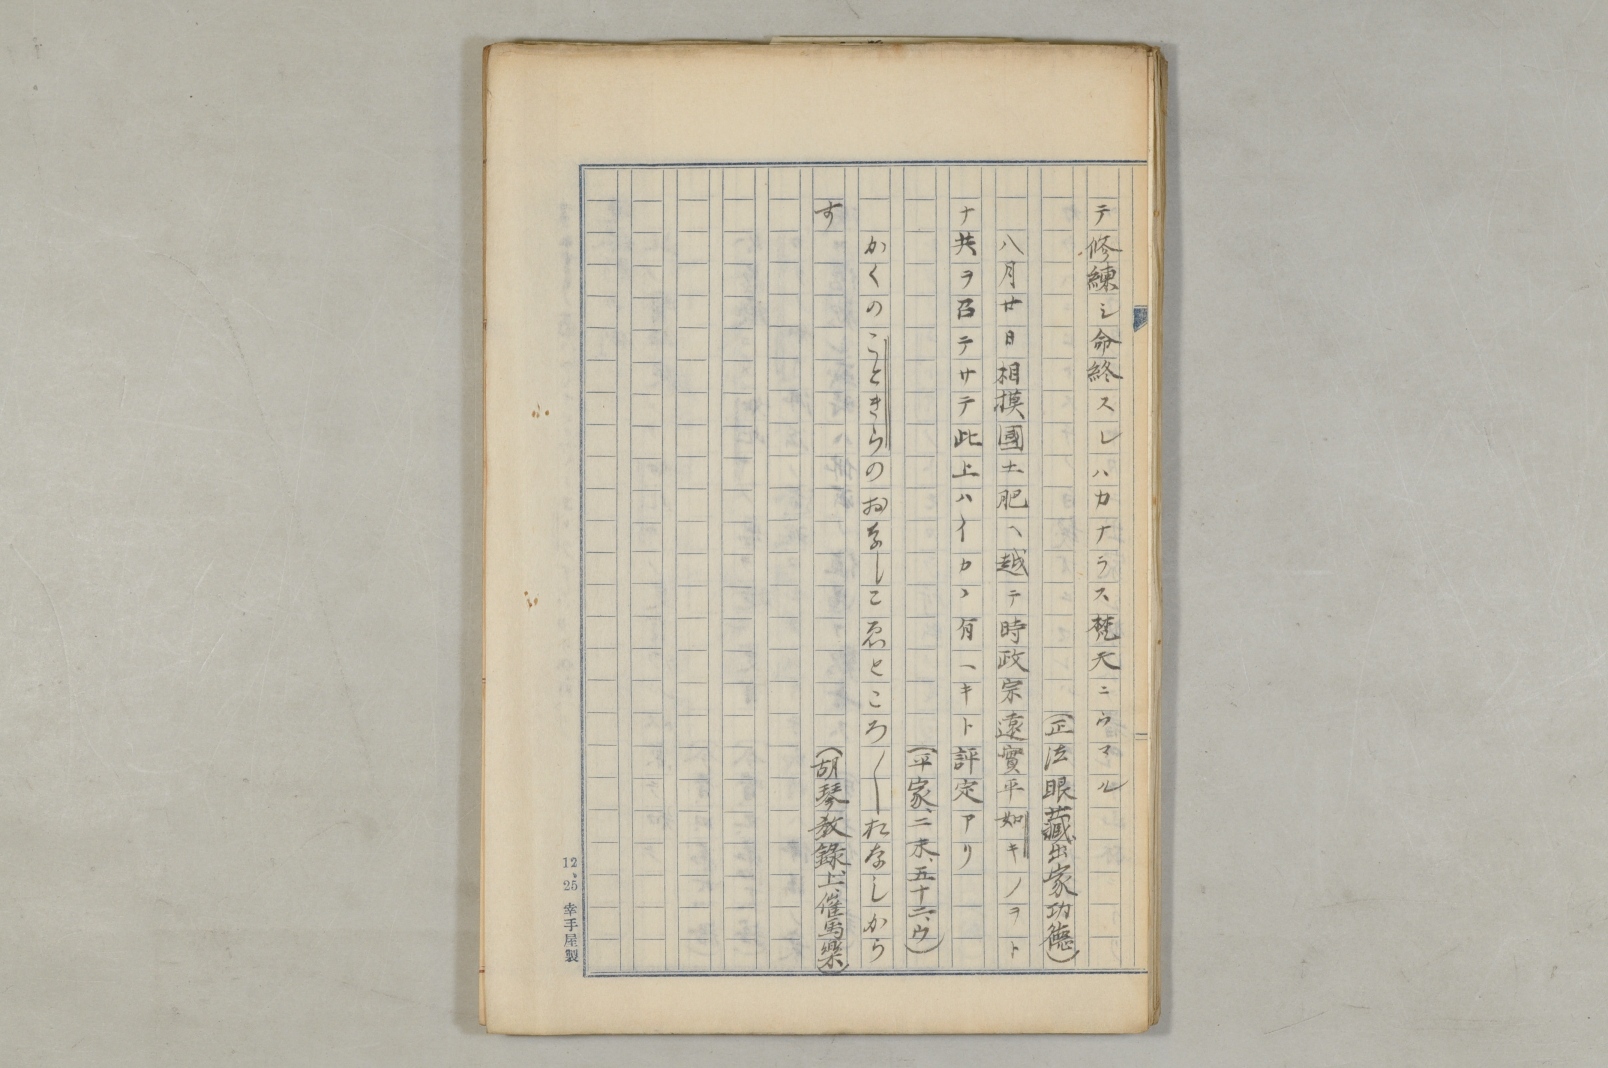 テ修練シ命終スレハカナラス梵天ニウマル
(正法眼藏出家功德)
八月廿日相摸國土肥ヘ越テ時政宗遠實平如キノヲト
ナ共ヲ召テサテ此上ハイカヽ有ヘキト評定アリ
(平家、二末、五十二、ウ)
かくのことききらのおなしこゑところ〳〵おなしから
す
(胡琴教錄上、催馬樂)
12、25 幸手屋製